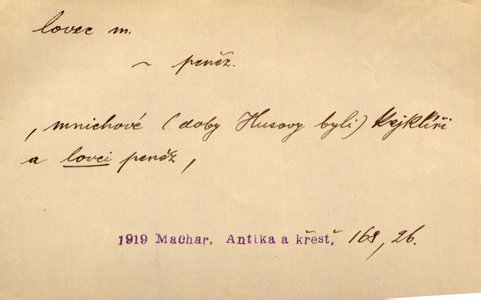 lovec m.
~ peněz.
, mnichové (doby Husovy byli) kejklíři
a lovci peněz,
1919 Machar, Antika a křesť, 168, 26.